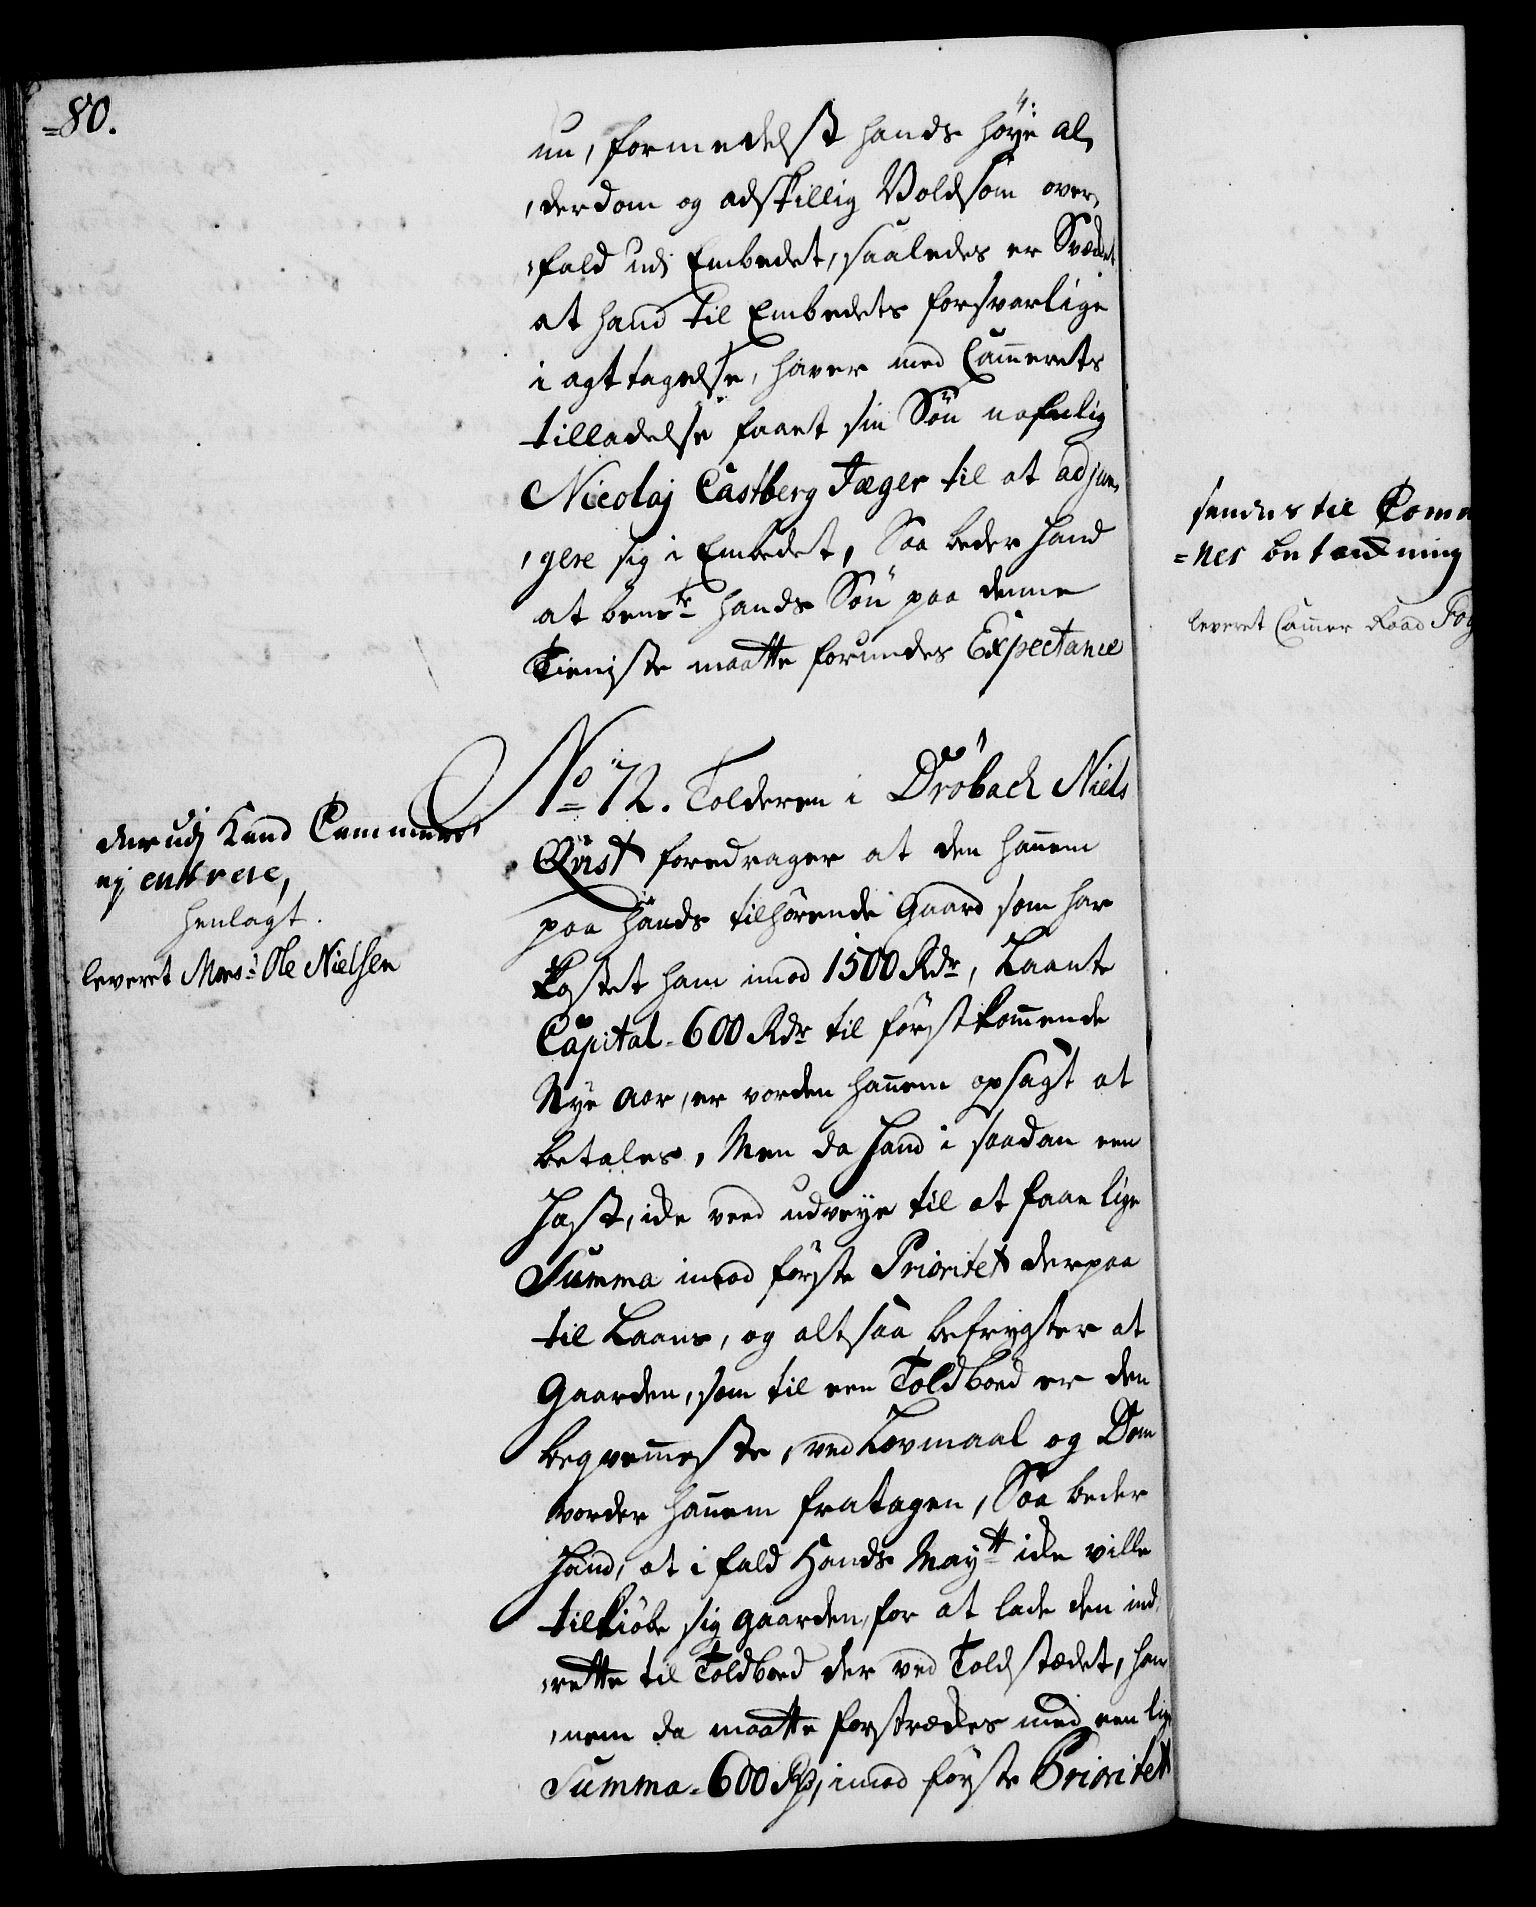 =80.
nu, formedelst hands høye al,
,derdom og adskillig Voldsom over,
,fald udj Embedet, saaledes er Svækket
at hand til Embedets forsvarlige
i agttagelse, haver med Cammerets
tilladelse faaet sin Søn nafnlig
Nicolaj Castberg Jæger til at adjun,
,gere sig i Embedet, Saa beder hand
at bemte hands Søn paa denne
Tieniste maatte forundes Expectance
No 72. Tolderen i Drøbach Niels
Qvist foredrager at den hannem
paa hands tilhørende Gaard som har
kostet ham imod 1500 Rdr, Laante
Capital 600 Rdr til førstkommende
Nye Aar, er vorden hannem opsagt at
betales, Men da hand i saadan een
Hast, ide veed udveye til at faae lige
Summa imod første Prioritet derpaa
til Laans, og altsaa befrygter at
Gaarden, som til een Toldboed er den
beqvemmeste, ved Lovmaal og Dom
vorder hannem fratagen, Saa beder
Hand, at i fald Hands Maytt ide ville
tilkiøbe sig gaarden, for at lade den ind,
,rette til Toldboed der ved Toldstædet, han
,nem da maatte forstrædes med een lige
Summa 600 Rdr, imod første Prioritet
derudj kand Cammeret
ej entrere,
henlagt.
leveret Mons: Ole Nielsen
sendes til Com
=nes betænkning
leveret Cammer Raad